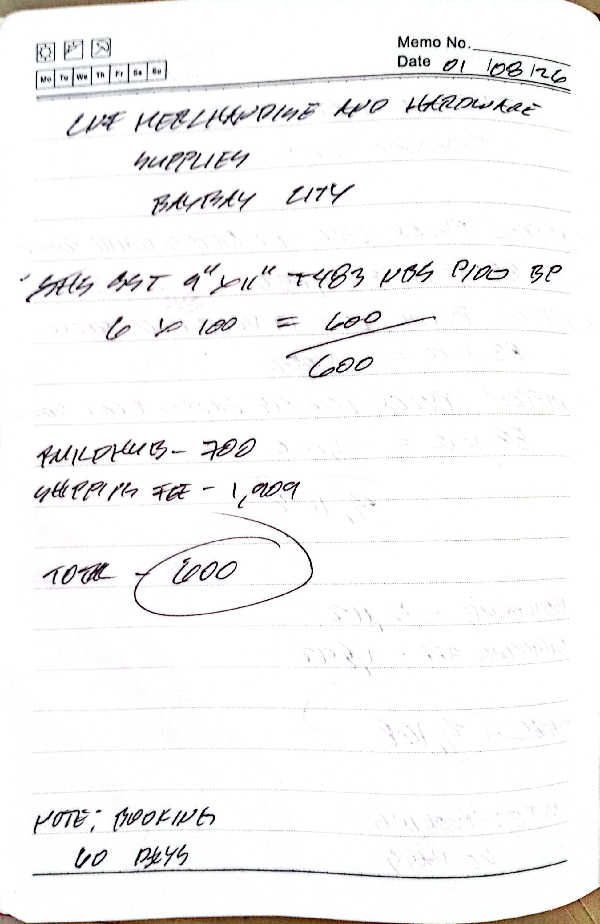 Memo No.
Date 01/08/26
Mo Tu We Th Fr Sa Su
MERCHANDISE AND HARDWARE
SUPPLIES
BAYBAY CITY
9" x 11" T483 P100 BP
6 x 100 = 600
600
BUILDHUB - 700
SHIPPING FEE - 1,909
TOTAL - 600
NOTE: BOOKING
60 DAYS